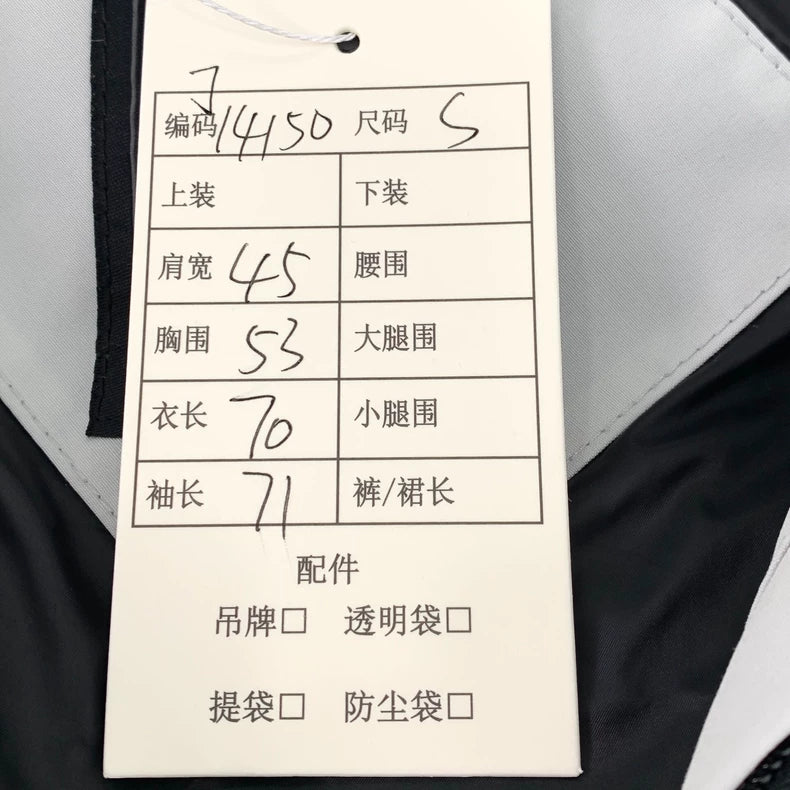 J
编码 14150 尺码 S
上装 下装
肩宽 45 腰围
胸围 53 大腿围
衣长 70 小腿围
袖长 71 裤/裙长
配件
吊牌□ 透明袋□
提袋□ 防尘袋□